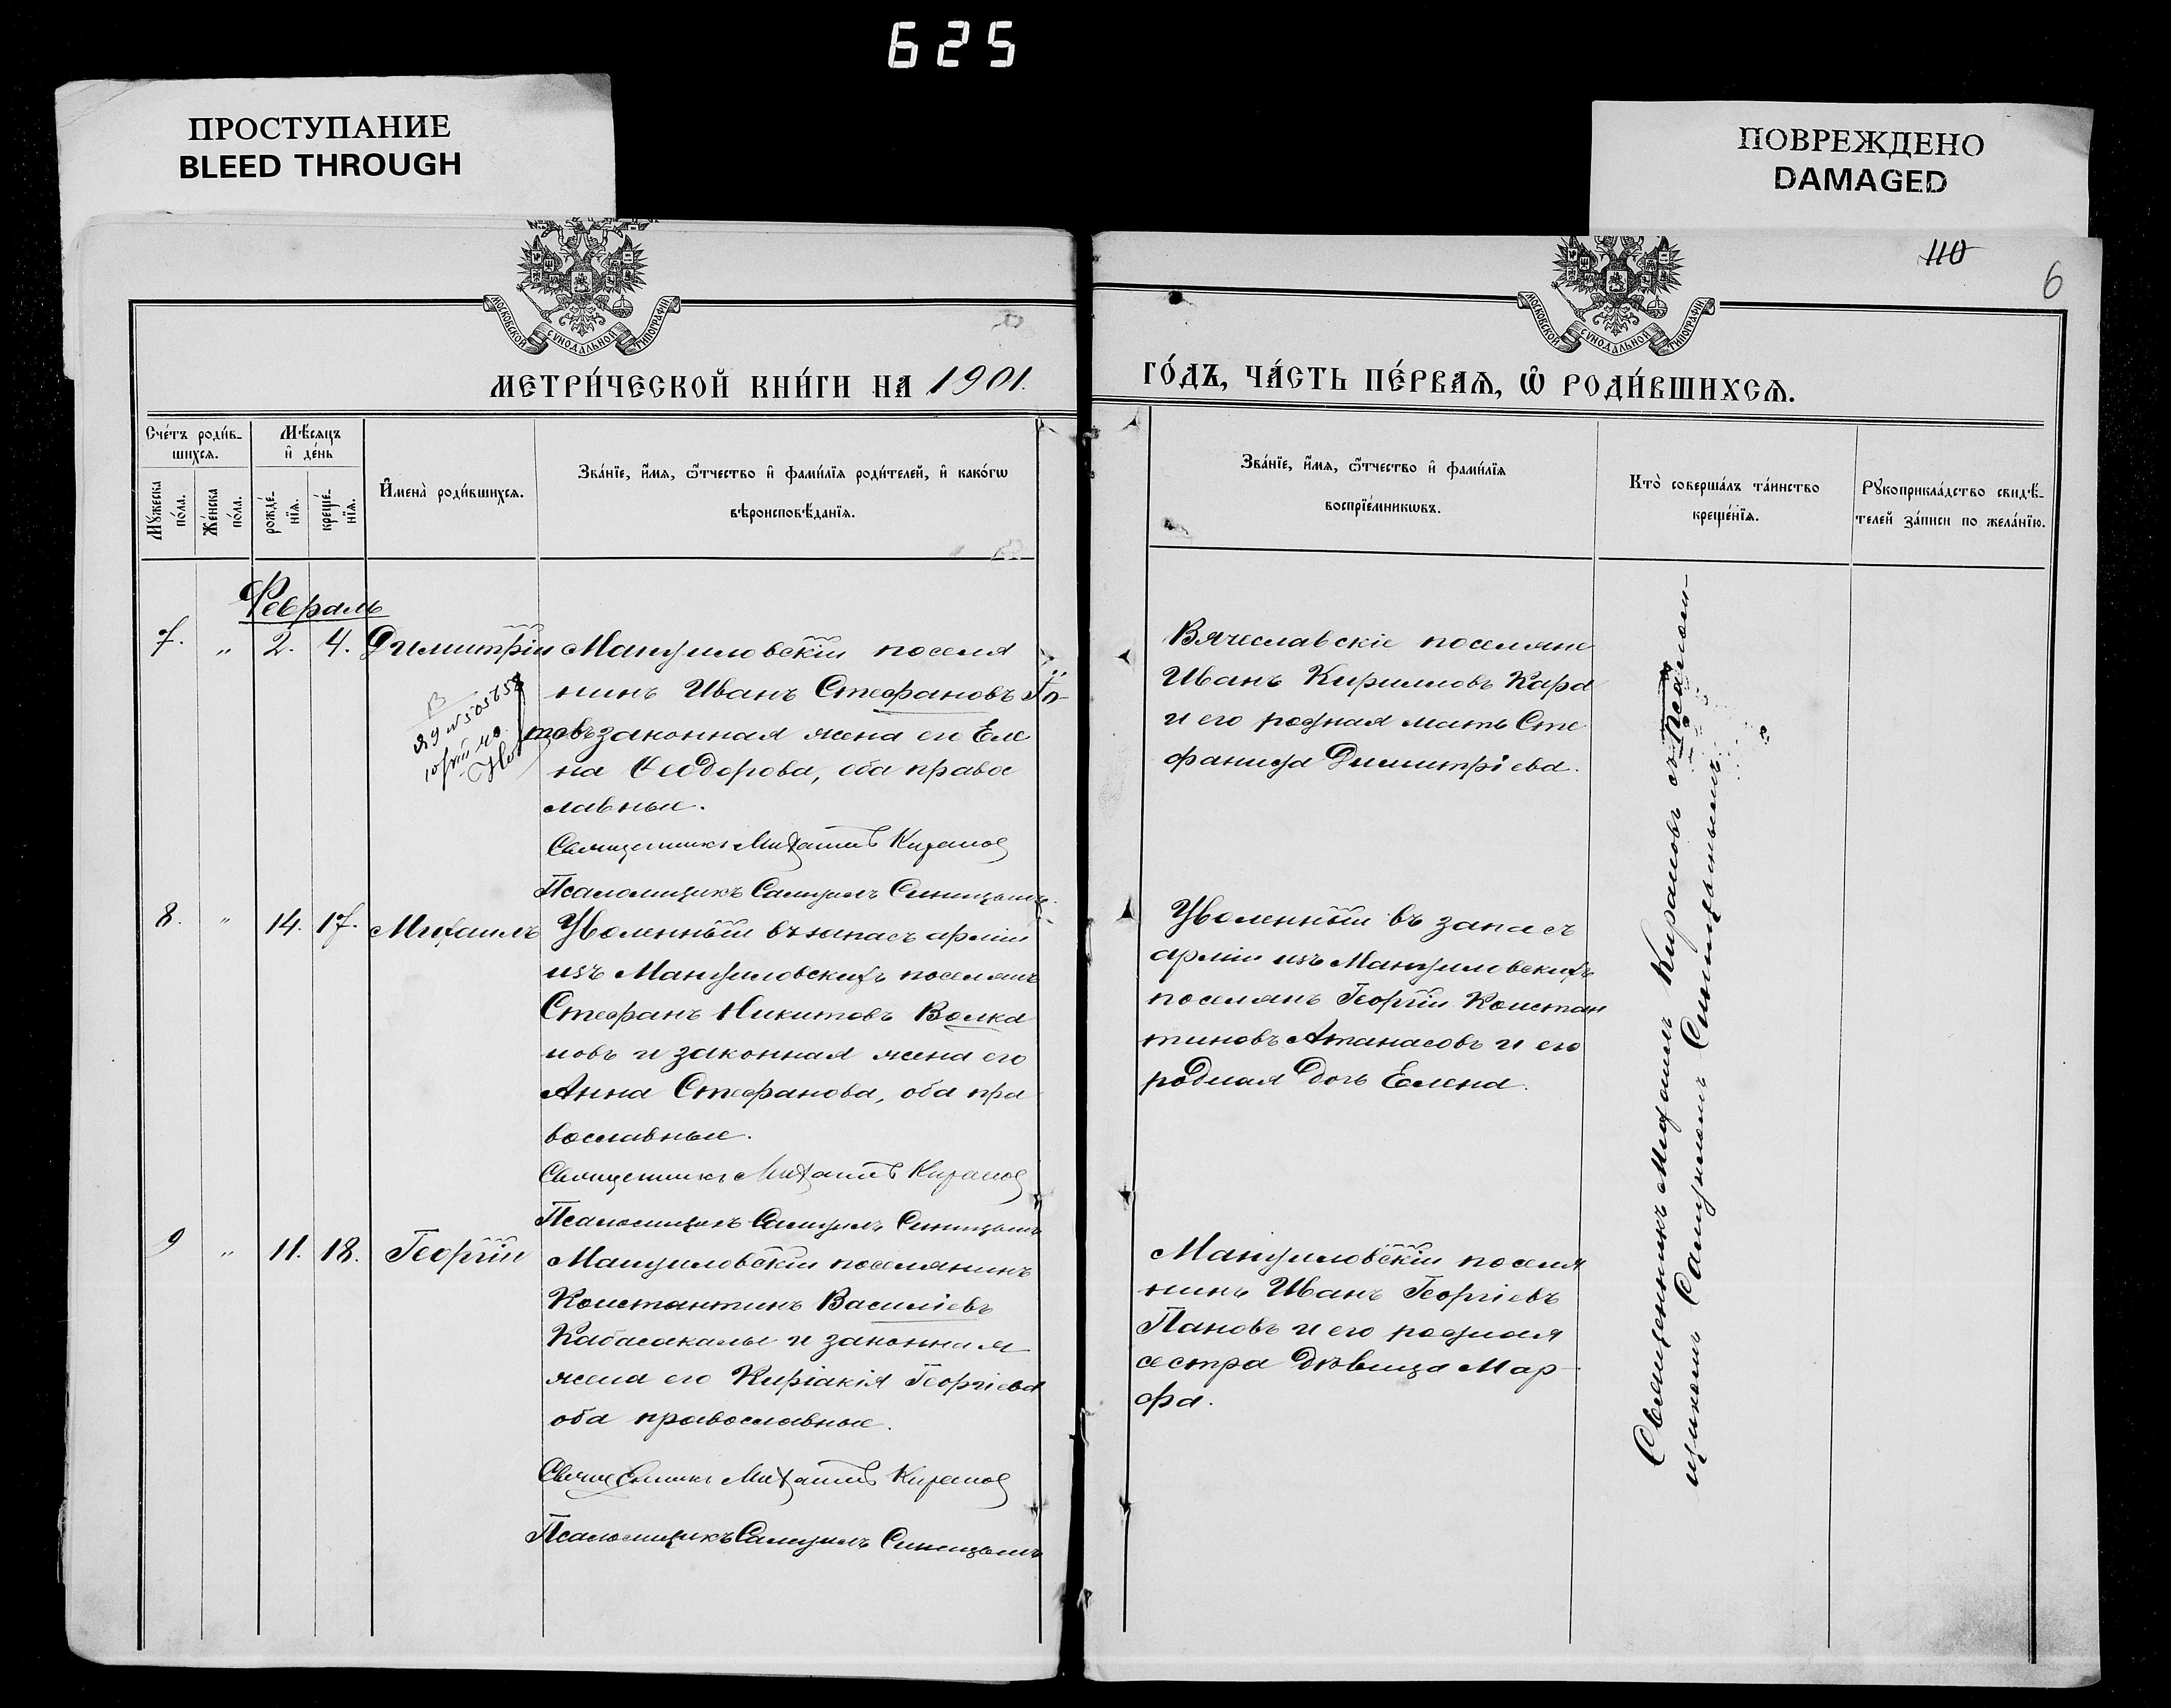 625
ПРОСТУПАНИЕ
BLEED THROUGH
ПОВРЕЖДЕНО
DAMAGED
110
6
МОСКОВСКОЙ СѴНОДАЛЬНОЙ ТИПОГРАФІИ
МОСКОВСКОЙ СѴНОДАЛЬНОЙ ТИПОГРАФІИ
МЕТРИ́ЧЕСКОЙ КНИ́ГИ НА 1901.
ГО́ДЪ, ЧА́СТЬ ПЕ́РВАѦ, Ѽ РОДИ́ВШИХСѦ.
Сче́тъ роди́в-
шихсѧ.
Мꙋ́жеска
по́ла.
Же́нска
по́ла.
Мѣ́сѧцъ
и҆ де́нь
рожде́-
нїѧ.
креще́-
нїѧ.
И҆мена̀ роди́вшихсѧ.
Зва́нїе, и҆́мѧ, ѻ҆́тчество и҆ фами́лїѧ роди́телей, и҆ како́гѡ
вѣроисповѣ́данїѧ.
Зва́нїе, и҆́мѧ, ѻ҆́тчество и҆ фами́лїѧ
воспрїе́мникѡвъ.
Кто̀ соверша́лъ та́инство
креще́нїѧ.
Рꙋкоприкла́дство свидѣ́-
телей за́писи по жела́нїю.
Февраль
7. " 2. 4. Димитрій
Мануиловскій поселя
нинъ Иванъ Стефановъ
законная жена его Еле
на Ѳеодорова, оба правос
лавные.
Священникъ Михаилъ Кирановъ
Псаломщикъ Самуилъ Синицынъ.
Вячеславскіе поселяне
Иванъ Кирилловъ Кара
и его родная мать Сте
фанида Димитріева.
8. " 14. 17. Михаилъ
Уволенный въ запасъ арміи
изъ Мануиловскихъ поселянъ
Стефанъ Никитовъ Волка
новъ и законная жена его
Анна Стефанова, оба пра
вославные.
Священникъ Михаилъ Кирановъ
Псаломщикъ Самуилъ Синицынъ
Уволенный въ запасъ
арміи изъ Мануиловскихъ
поселянъ Георгій Констан
тиновъ Атанасовъ и его
родная дочь Елена.
9 " 11. 18. Георгій
Мануиловскій поселянинъ
Константинъ Василіевъ
Кабасакалы и законная
жена его Киріакія Георгіева
оба православные.
Священникъ Михаилъ Кирановъ
Псаломщикъ Самуилъ Синицынъ
Мануиловскій поселя
нинъ Иванъ Георгіевъ
Пановъ и его родная
сестра дѣвица Мар-
фа.
Священникъ Михаилъ Кирановъ съ Псалом-
щикомъ Самуиломъ Синицынымъ.